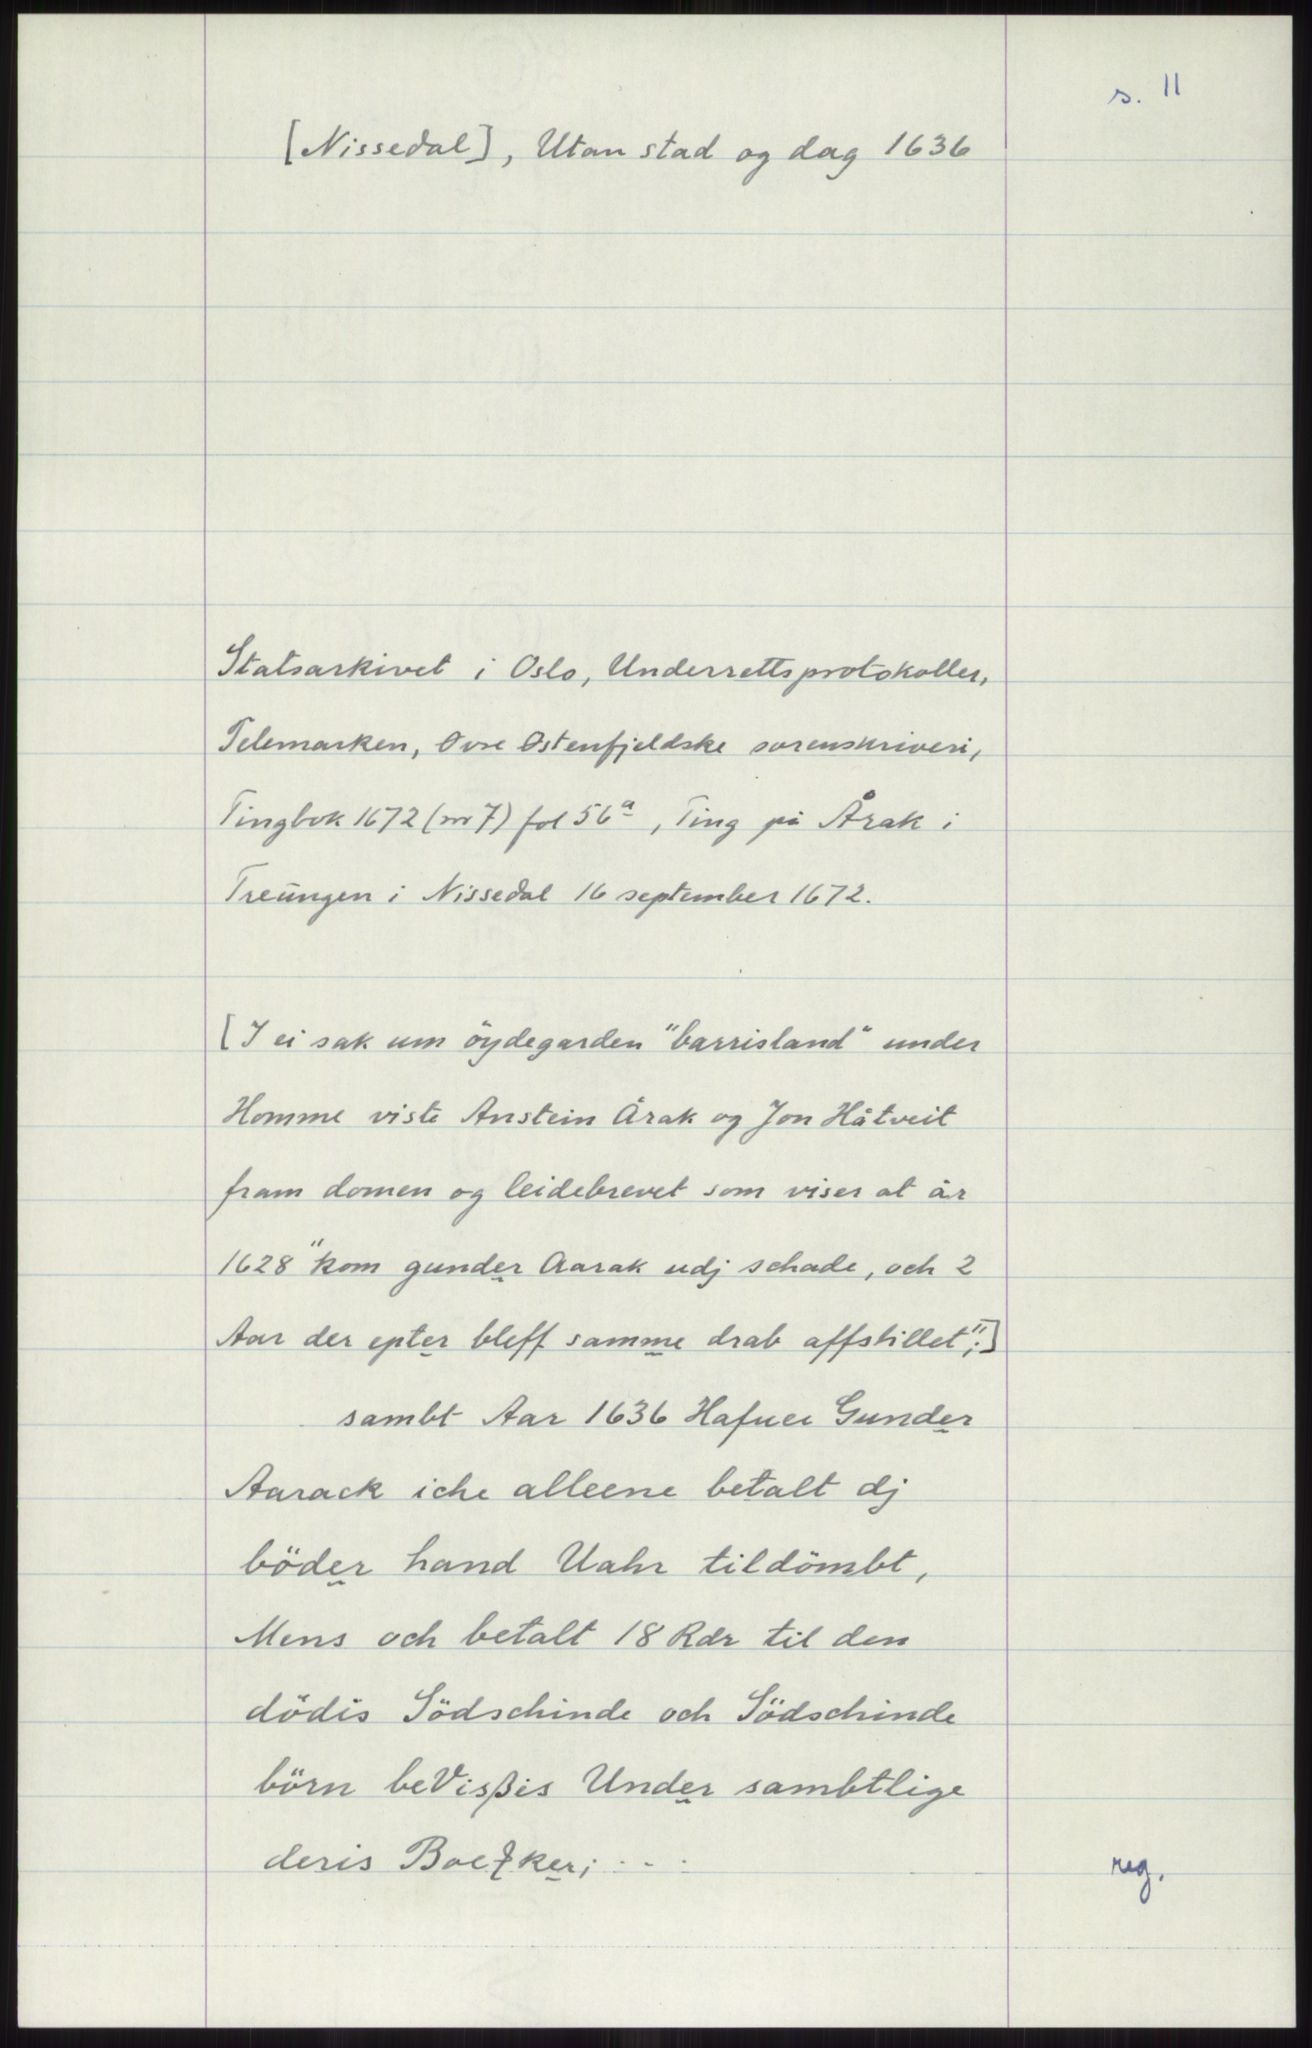 s. 11
[Nissedal], Utan stad og dag 1636
Statsarkivet i Oslo, Underrettsprotokoller,
Telemarken, Øvre Østenfjeldske sorenskriveri,
Tingbok 1672 (nr 7) fol 56a, Ting på Årak i
Treungen i Nissedal 16 september 1672.
[I ei sak um öydegarden "barrisland" under
Homme viste Anstein Årak og Jon Håtveit
fram domen og leidebrevet som viser at år
1628 "kom gunder Aarak udj schade, och 2
Aar der epter bleff samme drab affstillet";]
sambt Aar 1636 Hafuer Gunder
Aarack iche alleene betalt dj
böder hand Uahr tildömbt,
Mens och betalt 18 Rdr til den
dödis Södschinde och Södschinde
börn beVisßis Under sambtlige
deris
reg.